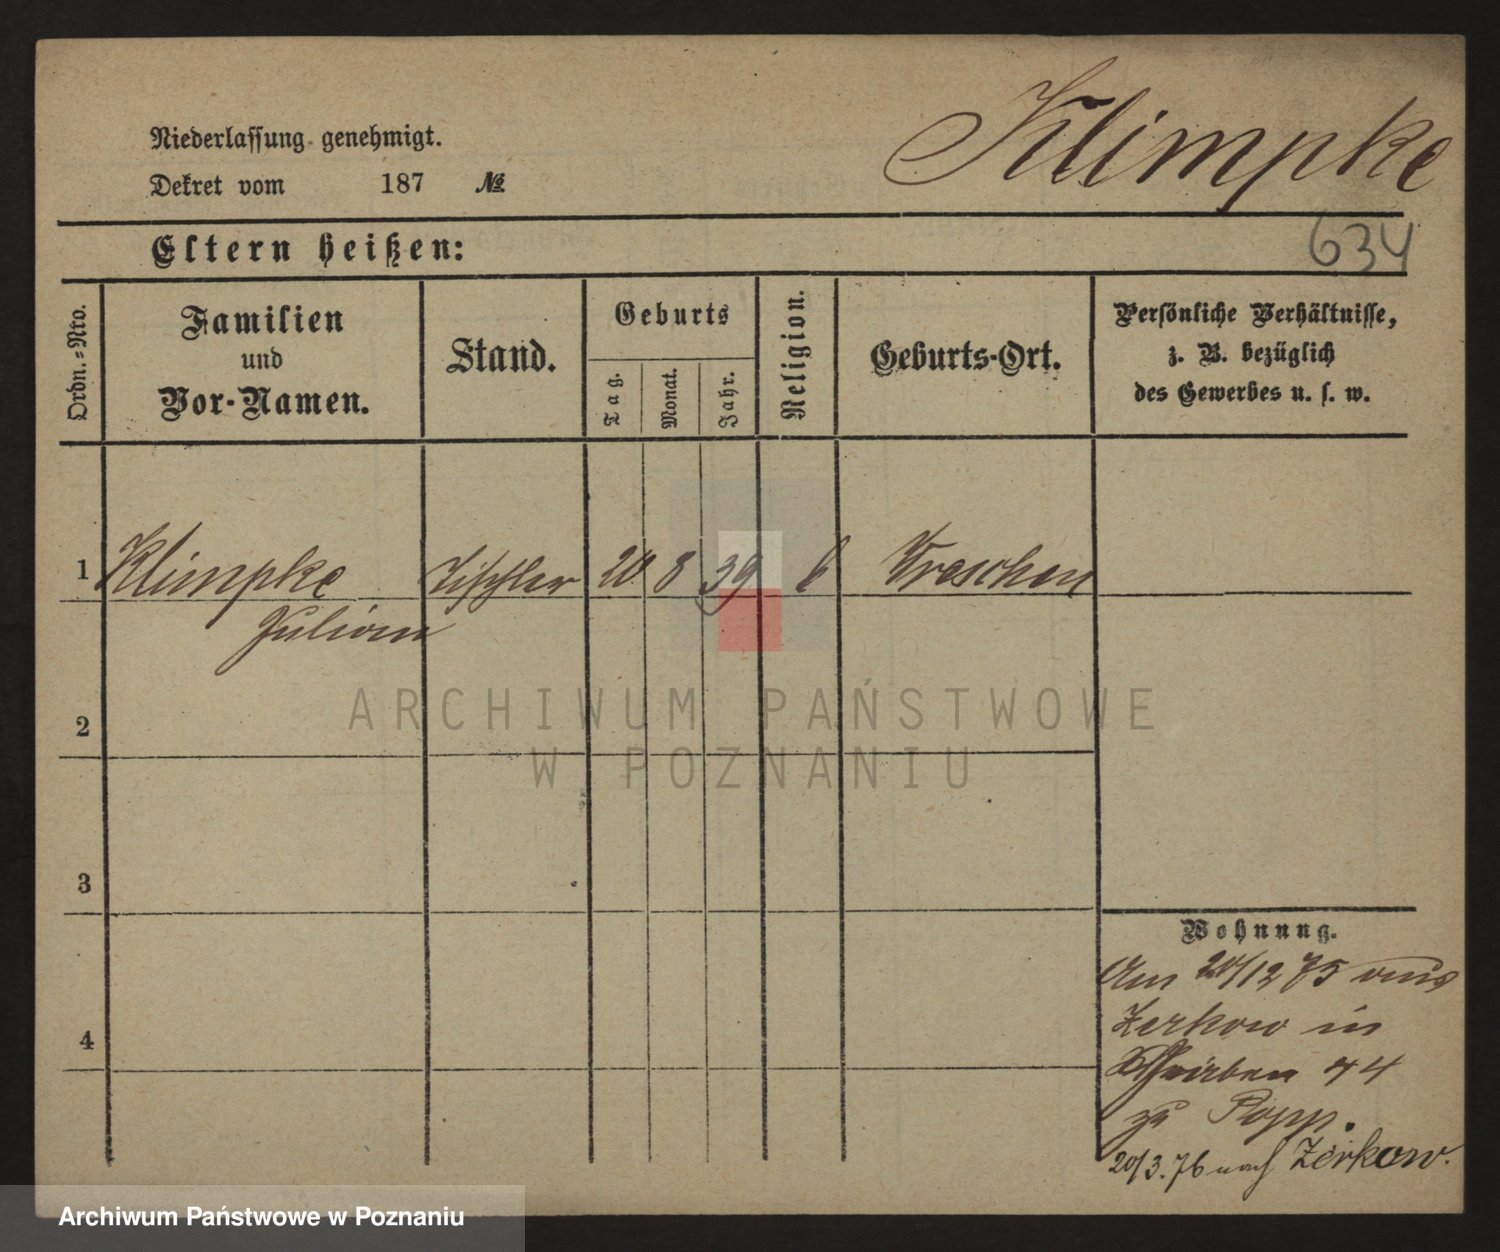 Klimpke
Niederlassung genehmigt.
Dekret vom 187 №
634
Eltern heißen:
Ordn.=Nro.
Familien
und
Vor-Namen.
Stand.
Geburts
Tag.
Monat.
Jahr.
Religion.
Geburts-Ort.
Persönliche Verhältnisse,
z. B. bezüglich
des Gewerbes u. s. w.
1 Klimpke Tischler 20 8 39 Wreschen
Julian
ARCHIWUM PAŃSTWOWE
W POZNANIU
2
3
4
Wohnung.
Am 20/12 75 aus
Zerkow in
44
zu Popp.
20/3.76 nach Zerkow.
Archiwum Państwowe w Poznaniu